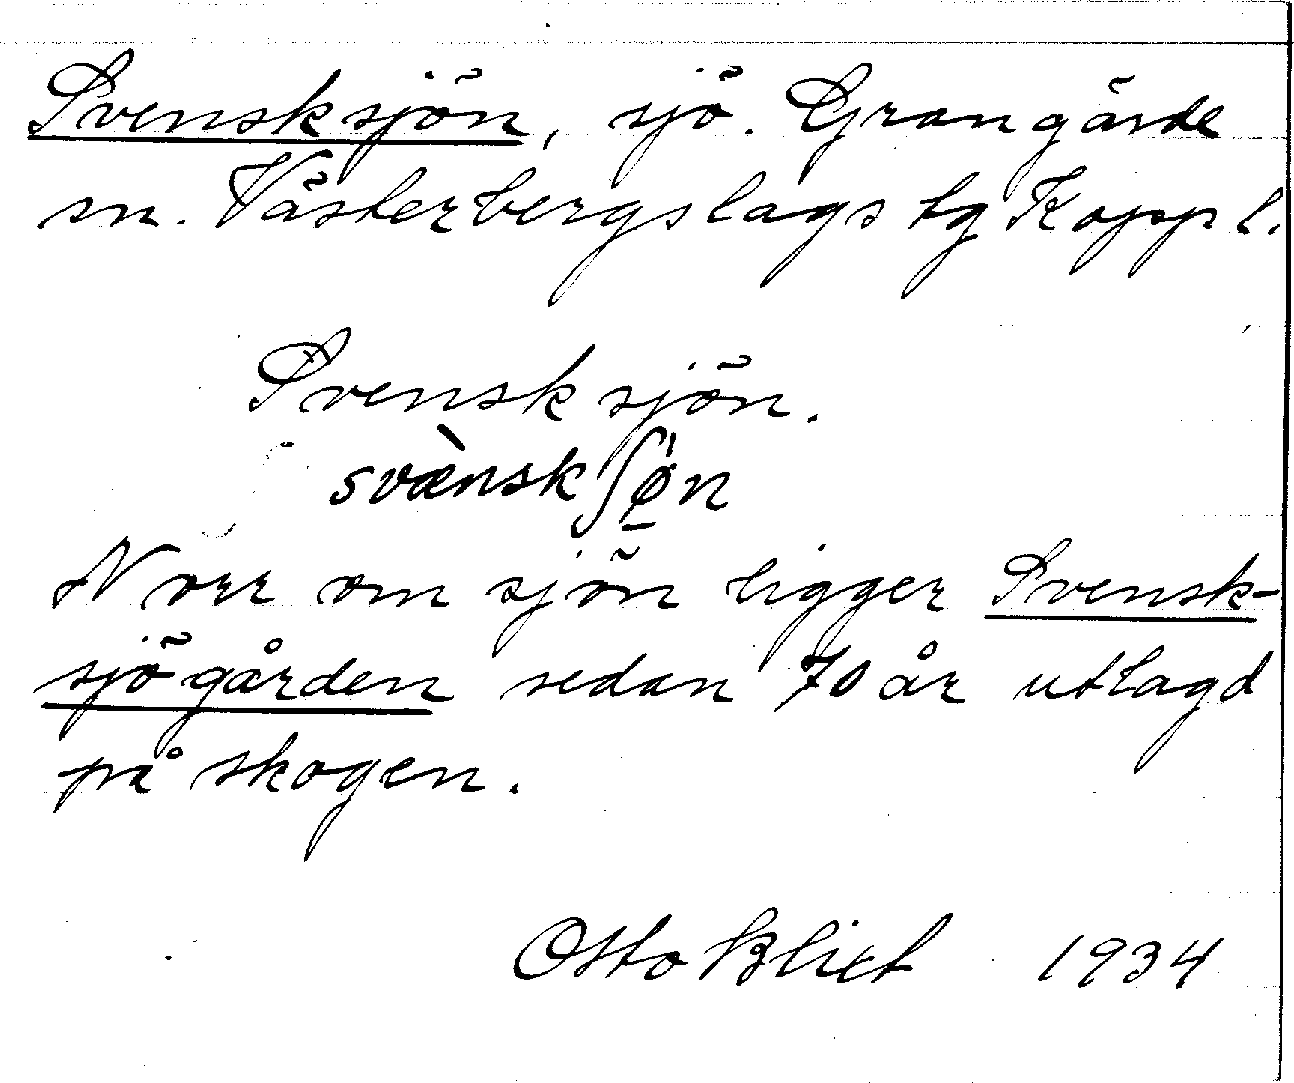 Svensksjön, sjö. Grangärde
sn. Västerbergslags tg Koppl.
Svensksjön.
svænskʃø̠n
Norr om sjön ligger Svensk-
sjögården sedan 70 år utlagd
på skogen.
Otto Blixt 1934